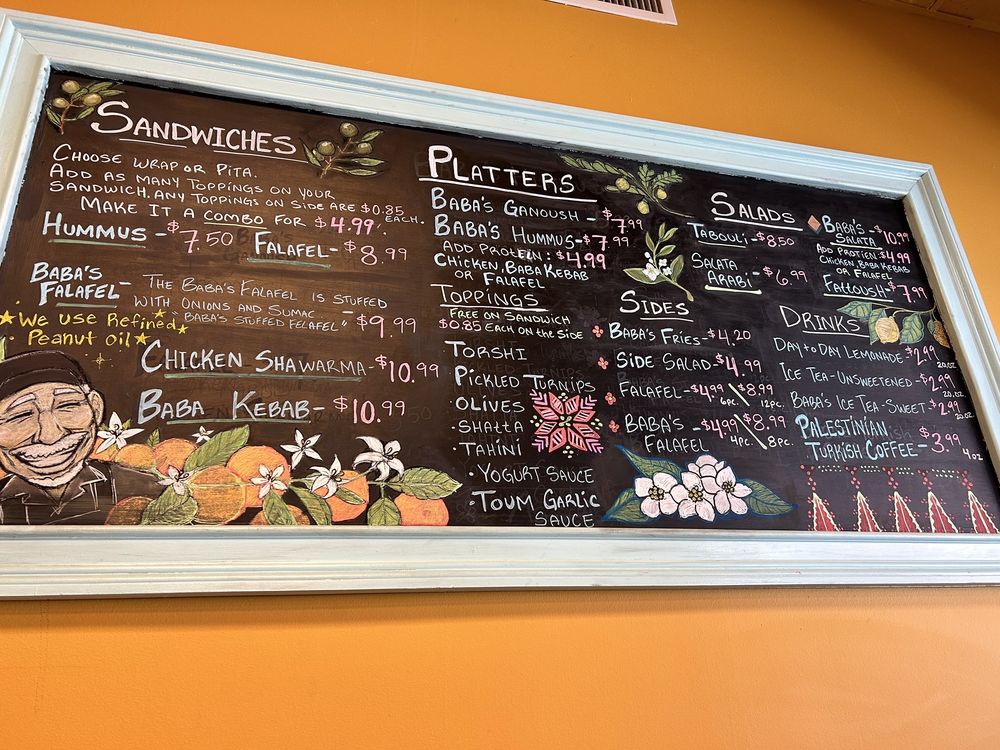 SANDWICHES
CHOOSE WRAP OR PITA.
ADD AS MANY TOPPINGS ON YOUR
SANDWICH. ANY TOPPINGS ON SIDE ARE $0.85 EACH.
MAKE IT A COMBO FOR $4.99!
HUMMUS - $7.50 FALAFEL - $8.99
BABA'S FALAFEL - THE BABA'S FALAFEL IS STUFFED
WITH ONIONS AND SUMAC
"BABA'S STUFFED FELAFEL" $9.99
We use Refined
Peanut oil
CHICKEN SHAWARMA - $10.99
BABA KEBAB - $10.99
PLATTERS
BABA'S GANOUSH - $7.99
BABA'S HUMMUS - $7.99
ADD PROTEIN: $4.99
CHICKEN, BABA KEBAB
OR FALAFEL
TOPPINGS
FREE ON SANDWICH
$0.85 EACH ON THE SIDE
TORSHI
PICKLED TURNIPS
· OLIVES
· SHATTA
· TAHINI
· YOGURT SAUCE
· TOUM GARLIC
SAUCE
SALADS
TABOULI - $8.50
SALATA
ARABI - $6.99
BABA'S
SALATA - $10.99
ADD PROTIEN $4.99
CHICKEN, BABA KEBAB
OR FALAFEL
FATTOUSH - $7.99
SIDES
BABA'S FRIES - $4.20
SIDE SALAD - $4.99
FALAFEL - $4.99 \ $8.99
6pc. 12pc.
BABA'S - $4.99 \ $8.99
FALAFEL 4pc. 8pc.
DRINKS
DAY TO DAY LEMONADE $2.99
20.oz
ICE TEA - UNSWEETENED - $2.99
20.oz
BABA'S ICE TEA - SWEET - $2.99
20.oz
PALESTINIAN
TURKISH COFFEE - $3.99
4oz